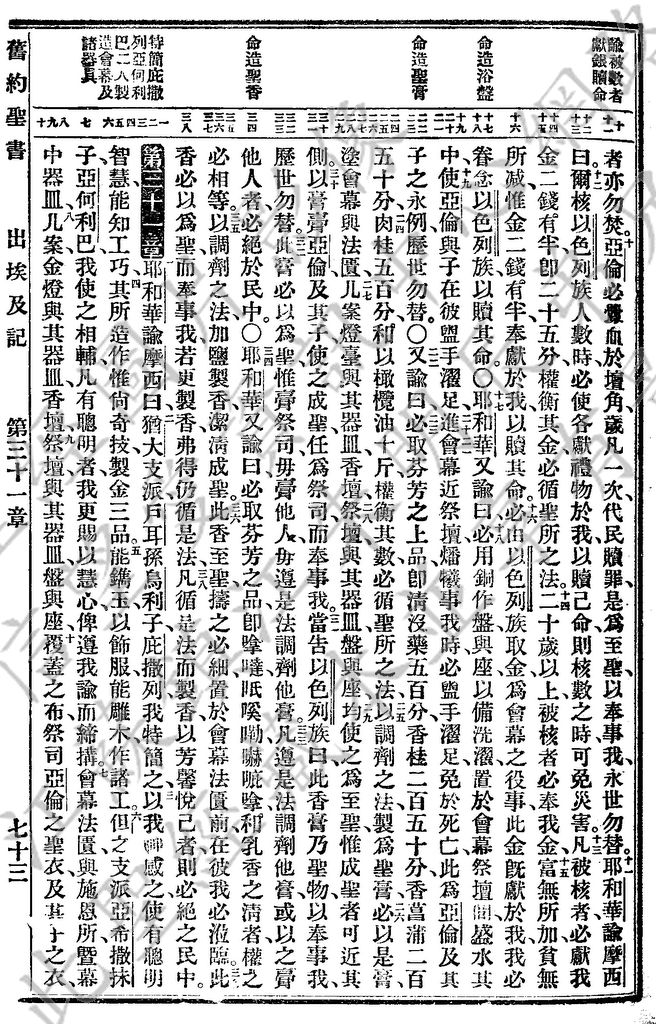 諭被數者
獻銀贖命
命造浴盤
命造聖膏
命造聖香
特簡庇撒
列亞何利
巴二人製
造會幕及
諸器具
者亦勿焚亞倫必釁血於壇角歲凡一次代民贖罪是爲至聖以奉事我永世勿替耶和華諭摩西
曰爾核以色列族人數時必使各獻禮物於我以贖己命則核數之時可免災害凡被核者必獻我
金二錢有半卽二十五分權衡其金必循聖所之法二十歲以上被核者必奉我金富無所加貧無
所減惟金二錢有半奉獻於我以贖其命必由以色列族取金爲會幕之役事此金旣獻於我我必
眷念以色列族以贖其命〇耶和華又諭曰必用銅作盤與座以備洗濯置於會幕祭壇間盛水其
中使亞倫與子在彼盥手濯足進會幕近祭壇燔犧事我時必盥手濯足免於死亡此爲亞倫及其
子之永例歷世勿替〇又諭曰必取芬芳之上品卽清沒藥五百分香桂二百五十分香菖蒲二百
五十分肉桂五百分和以橄欖油十斤權衡其數必循聖所之法以調劑之法製爲聖膏必以是膏
塗會幕與法匱几案燈臺與其器皿香壇祭壇與其器皿盤與座均使之爲至聖惟成聖者可近其
側以膏膏亞倫及其子使之成聖任爲祭司而奉事我當告以色列族曰此香膏乃聖物以奉事我
歷世勿替此膏必以爲聖惟膏祭司毋膏他人毋遵是法調劑他膏凡遵是法調劑他膏或以之膏
他人者必絕於民中〇耶和華又諭曰必取芬芳之品卽拿噠㕶𠺕嘞嚇喨拿和乳香之淸者權之
必相等以調劑之法加鹽製香潔淸成聖此香至聖擣之必細置於會幕法匱前在彼我必涖臨此
香必以爲聖而奉事我若更製香弗得仍循是法凡循是法而製香以芳馨悅己者則必絕之民中
第三十一章耶和華諭摩西曰猶大支派戶耳孫烏利子庇撒列我特簡之以我神感之使有聰明
智慧能知工巧其所造作惟尙奇技製金三品能鐫玉以飾服能雕木作諸工但之支派亞希撒抹
子亞何利巴我使之相輔凡有聰明者我更賜以慧心俾遵我諭而締搆會幕法匱與施恩所曁幕
中器皿几案金燈與其器皿香壇祭壇與其器皿盤與座覆蓋之布祭司亞倫之聖衣及其子之衣
舊約聖書 出埃及記 第三十一章 七十三